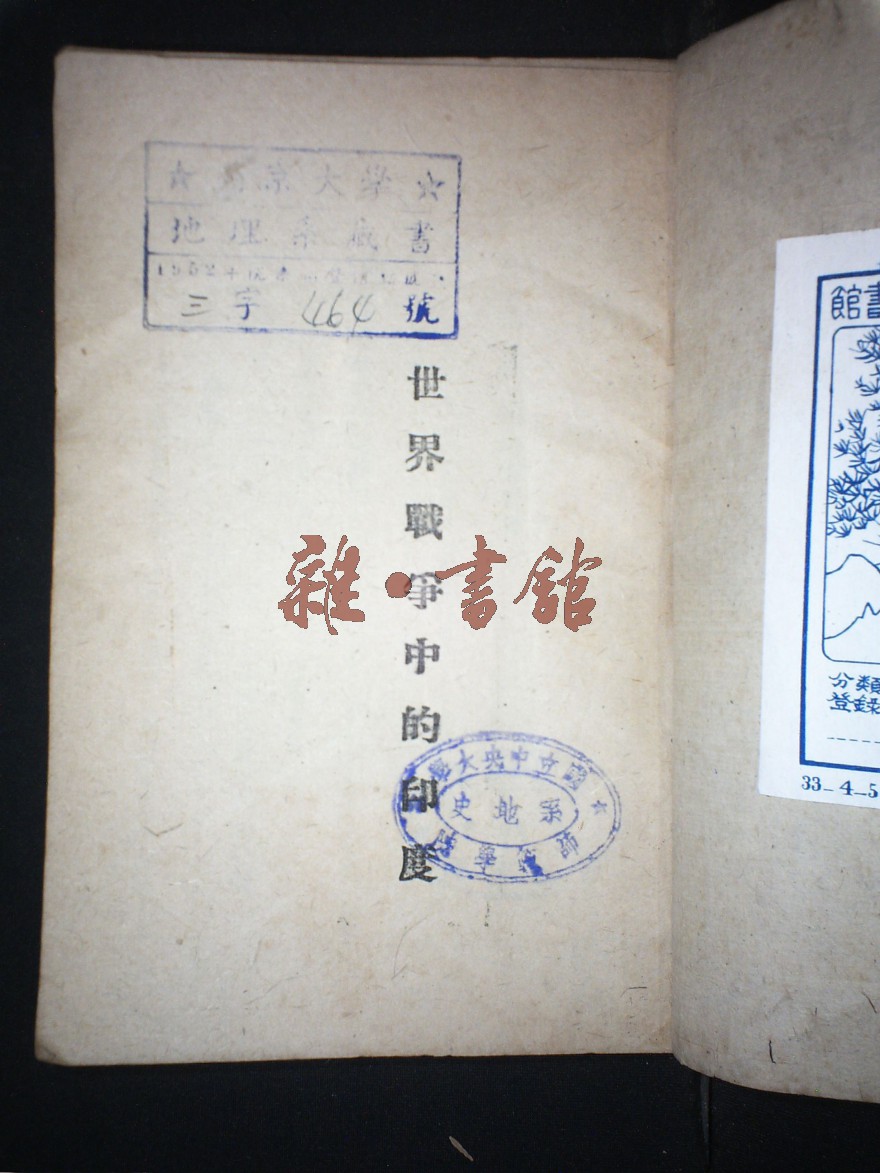 南京大學
地理系藏書
三字 464 號
世界戰爭中的印度
雜·書館
國立中央大學
師範學院
史地系
書館
分類
登錄
33-4-5